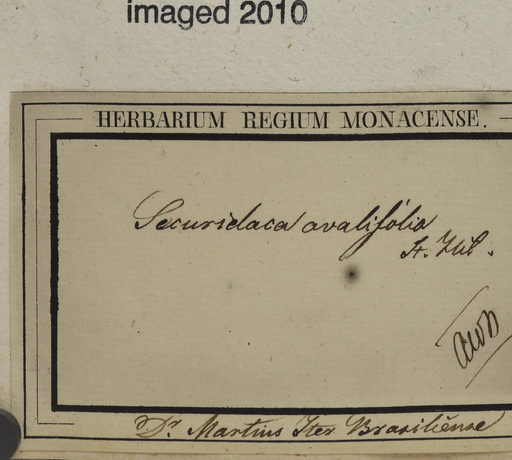 imaged 2010
HERBARIUM REGIUM MONACENSE.
Securidaca ovalifólia
St. Hil.
Dr. Martius Iter Brasiliense